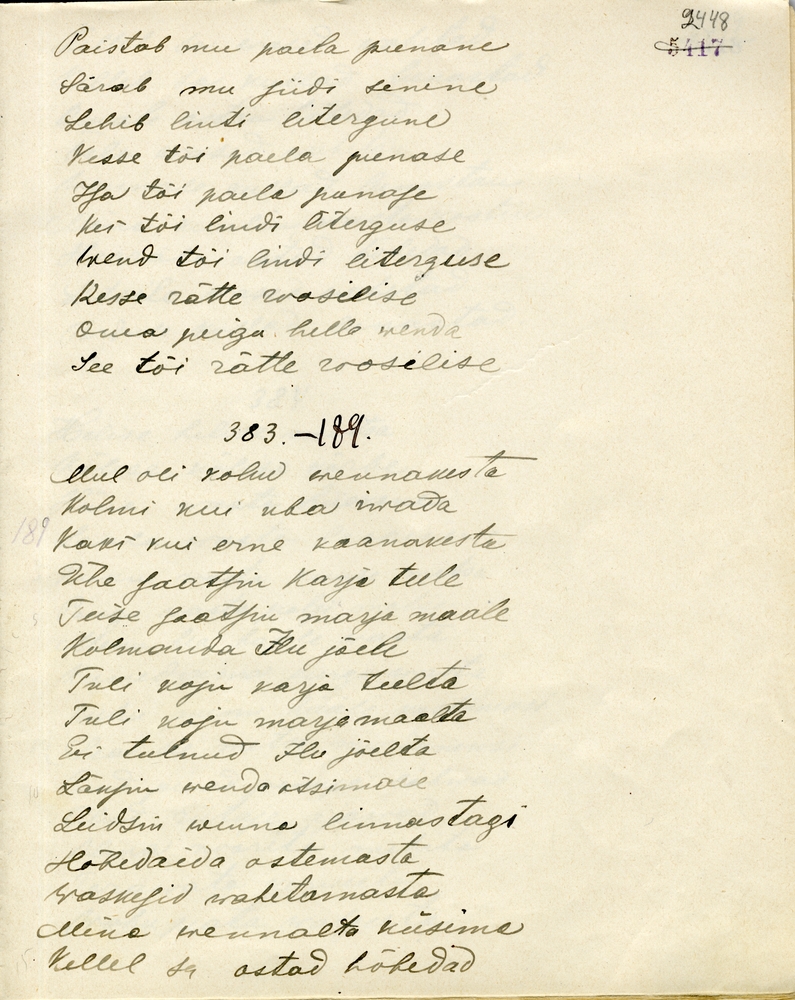 2448
5417
Paistab mu paela punane
Särab mu siidi sinine
Lehib linti litergune
Kesse tõi paela punase
Isa tõi paela punase
Kes tõi lindi literguse
Wend tõi lindi literguse
Kesse rätte roosilise
Oma peigu hella wenda
See tõi rätte roosilise
383. – 189.
Mul oli kolm wennakesta
Kolmi kui uba iwada
189
Kaks kui erne kaanakesta
Ühe saatsin Karja teele
Teise saatsin marja maale
Kolmanda Ilu jõele
Tuli koju karja teelta
Tuli koju marja maalta
Ei tulnud Ilu jõelta
Läksin wenda otsimaie
Leidsin wenna linnastagi
Hõbedaida ostemasta
Waskesid wahetamasta
Mina wennalta küsima
Kellel sa ostad hõbedad